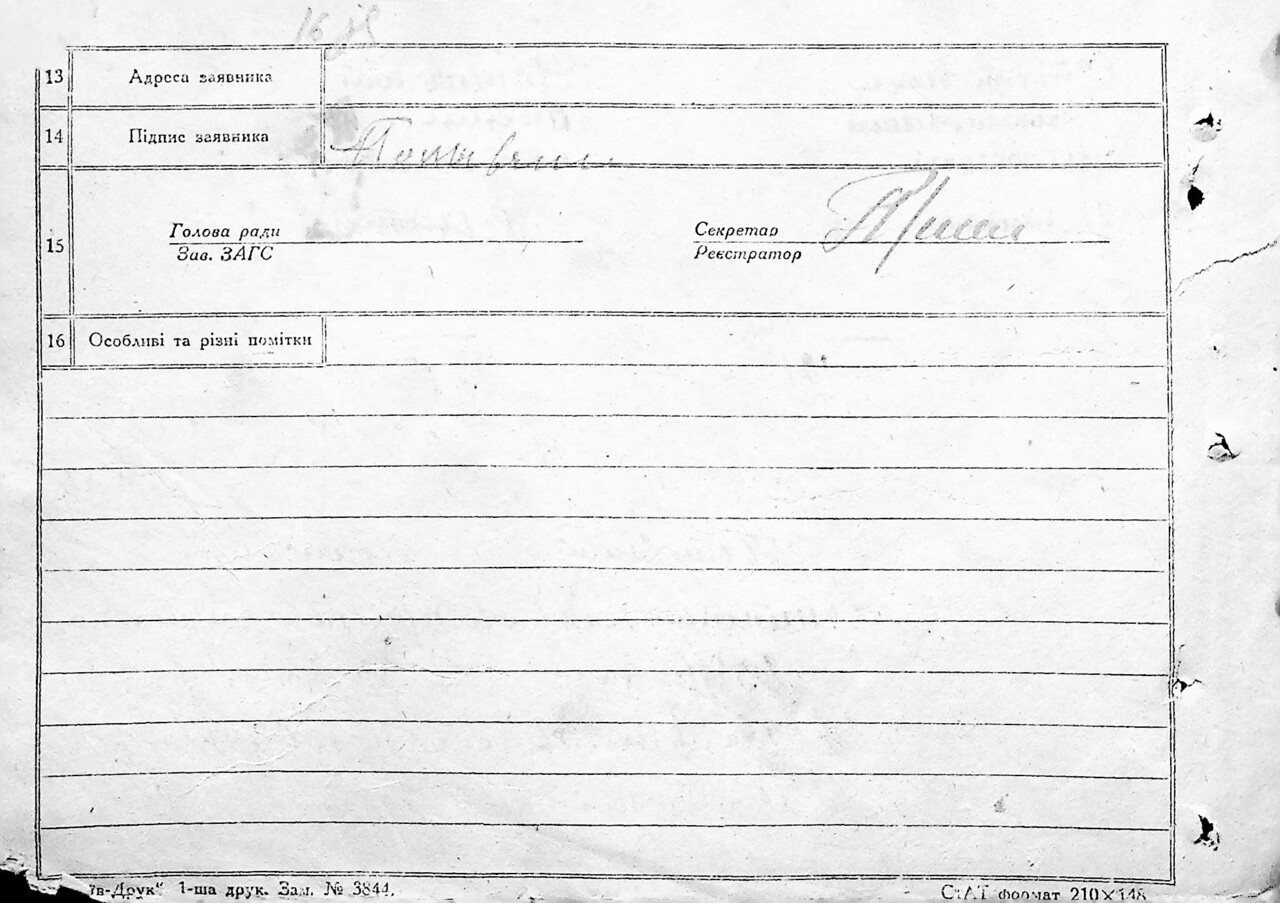 13 Адреса заявника
14 Підпис заявника
15 Голова ради Секретар
Зав. ЗАГС Реєстратор
16 Особливі та різні помітки
їв-Друк" 1-ша друк. Зам. № 3844. СтАТ формат 210×148